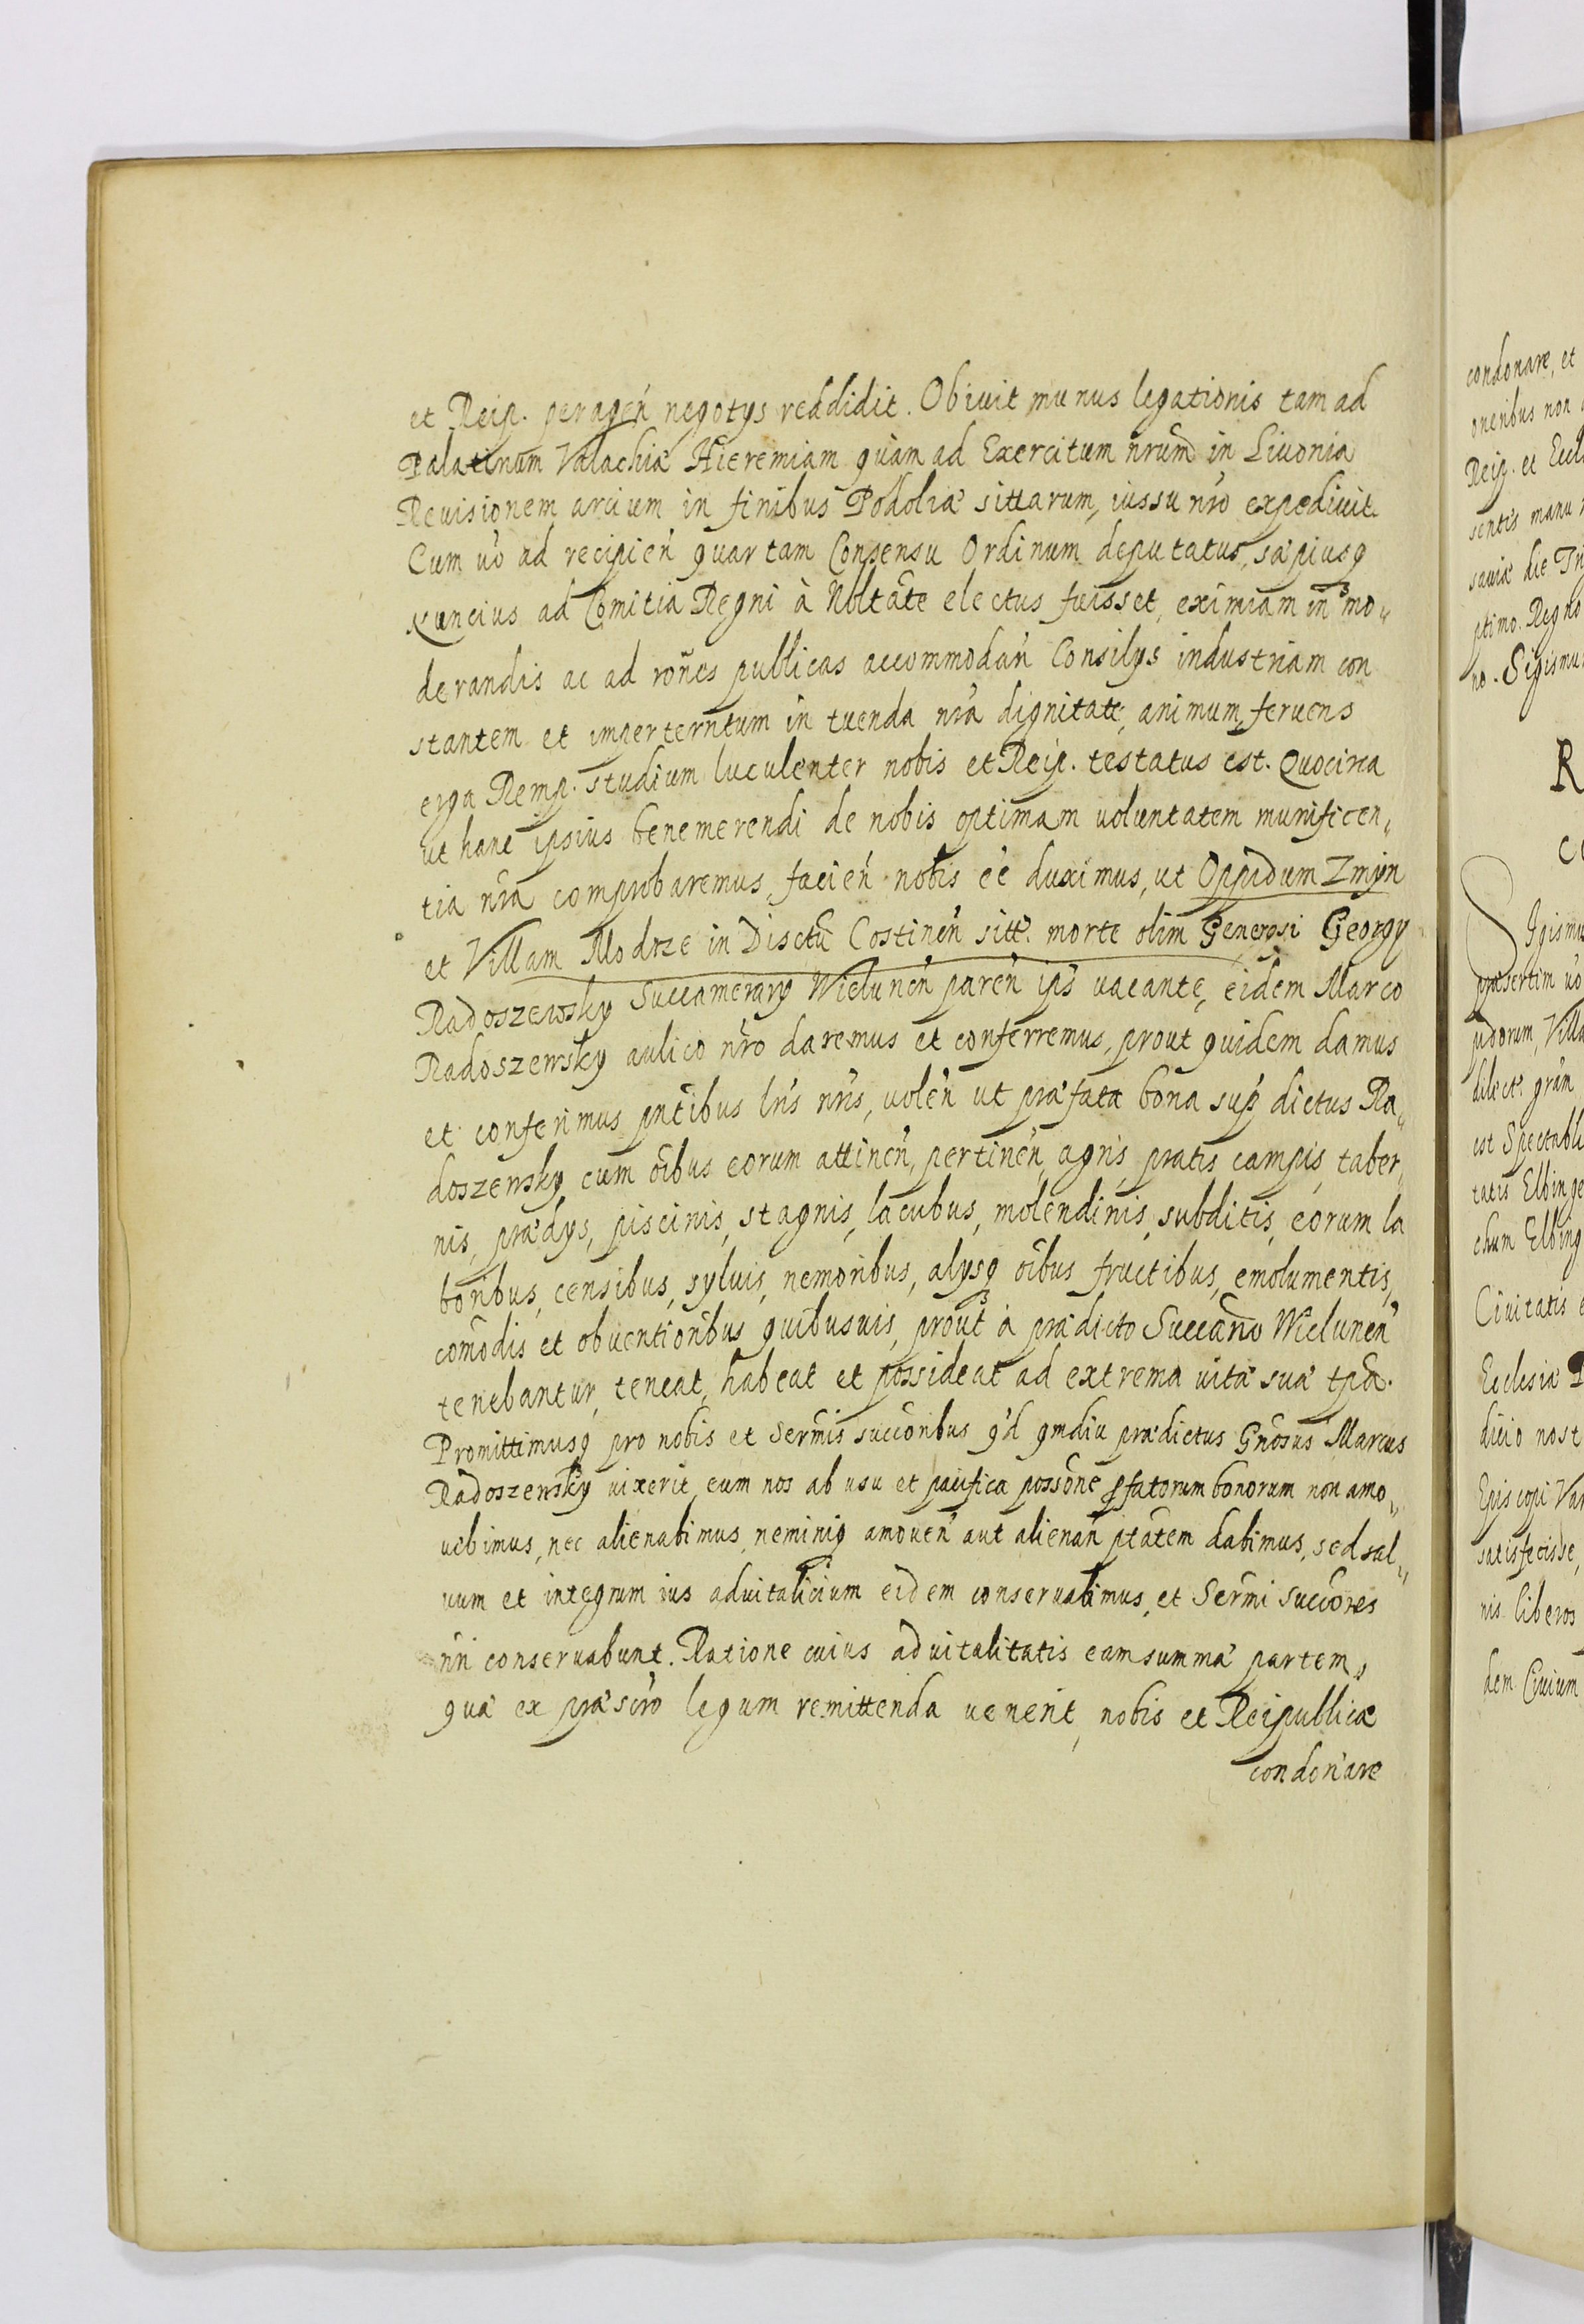 et Reip. peragen̄ negotys reddidit. Obiuit munus legationis tam ad
Palatinum Valachiæ Hieremiam quàm ad Exercitum nr̄um in Liuonia
Reuisionem arcium in finibus Podoliæ sittarum, iussu nr̄o expediuit.
Cum uō ad recipien̄ quartam Consensu Ordinum deputatus, sæpiusq
Nuncius ad Comitia Regni à Nobltāte electus fuisset, eximiam in mo„
derandis ac ad rōnes publicas accommodan̄ Consilys industriam con
stantem et imperterritum in tuenda nr̄a dignitate, animum, feruens
erga Remp. studium luculenter nobis et Reip. testatus est. Quocirca
ut hanc ipsius benemerendi de nobis optimam uoluntatem munificen„
tia nr̄a comprobaremus, facien̄ nobis eē duximus, ut Oppidum Zmijn
et Villam Modrze in Disctū Costinen̄ sitt. morte olim Generosi Georgy
Radoszewsky Succamerary Wielunen̄ paren̄ ips̄ uacante, eidem Marco
Radoszewsky aulico nr̄o daremus et conferremus, prout quidem damus
et conferimus pn̄tibus lr̄is nr̄is, uolen̄ ut præfata bona sup̄ dictus Ra„
doszewsky cum oībus eorum attinen̄, pertinen̄, agris, pratis campis, taber„
nis, prædys, piscinis, stagnis, lacubus, molendinis, subditis, eorum la
boribus, censibus, syluis, nemoribus, alysq oībus fructibus, emolumentis,
com̄odis et obuentionibus quibusuis, prout à prædicto Succarīo Wielunen̄
tenebantur, teneat, habeat et possideat ad extrema uitæ suæ tp̄a.
Promittimusq pro nobis et Serm̄is succōribus qd̄ qmdiu prædictus Gnōsus Marcus
Radoszewsky uixerit, eum nos ab usu et pacifica possōne p̄fatorum bonorum non amo„
uebimus, nec alienabimus, neminiq amouen̄ aut alienan̄ ptātem dabimus, sed sal„
uum et integrum ius aduitalicium eidem conseruabimus, et Serm̄i Succōres
nr̄i conseruabunt. Ratione cuius aduitalitatis eam summæ partem,
quæ ex præscrō legum remittenda uenerit, nobis et Reipublicæ
condonare
condonare, et
oneribus non
Reip. et Eccl
sentis manu
sauiæ die
ptimo. Regno
no. Sigismu
R
Sigismu
præsertim uō
Villa
dilect. grām
est Spectabli
tatis Elbinge
chum Elbing
Ciuitatis
Ecclesiæ
dicio nost
Episcopi Var
satisfecisse,
nis liberos
dem Ciuium